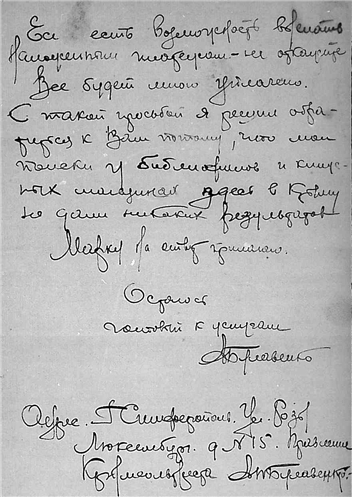 Если есть возможность выслать
наложенным платежом – не откажите
Все будет мною уплачено.
С такой просьбой я решил обра-
титься к Вам потому, что мои
поиски у библиофилов и книж-
ных магазинах здесь в Крыму
не дали никаких результатов
Марку на ответ прилагаю.
Остаюсь
готовый к услугам
Адрес. г. Симферополь. Ул. Розы
Люксембург. д № 15. Правление